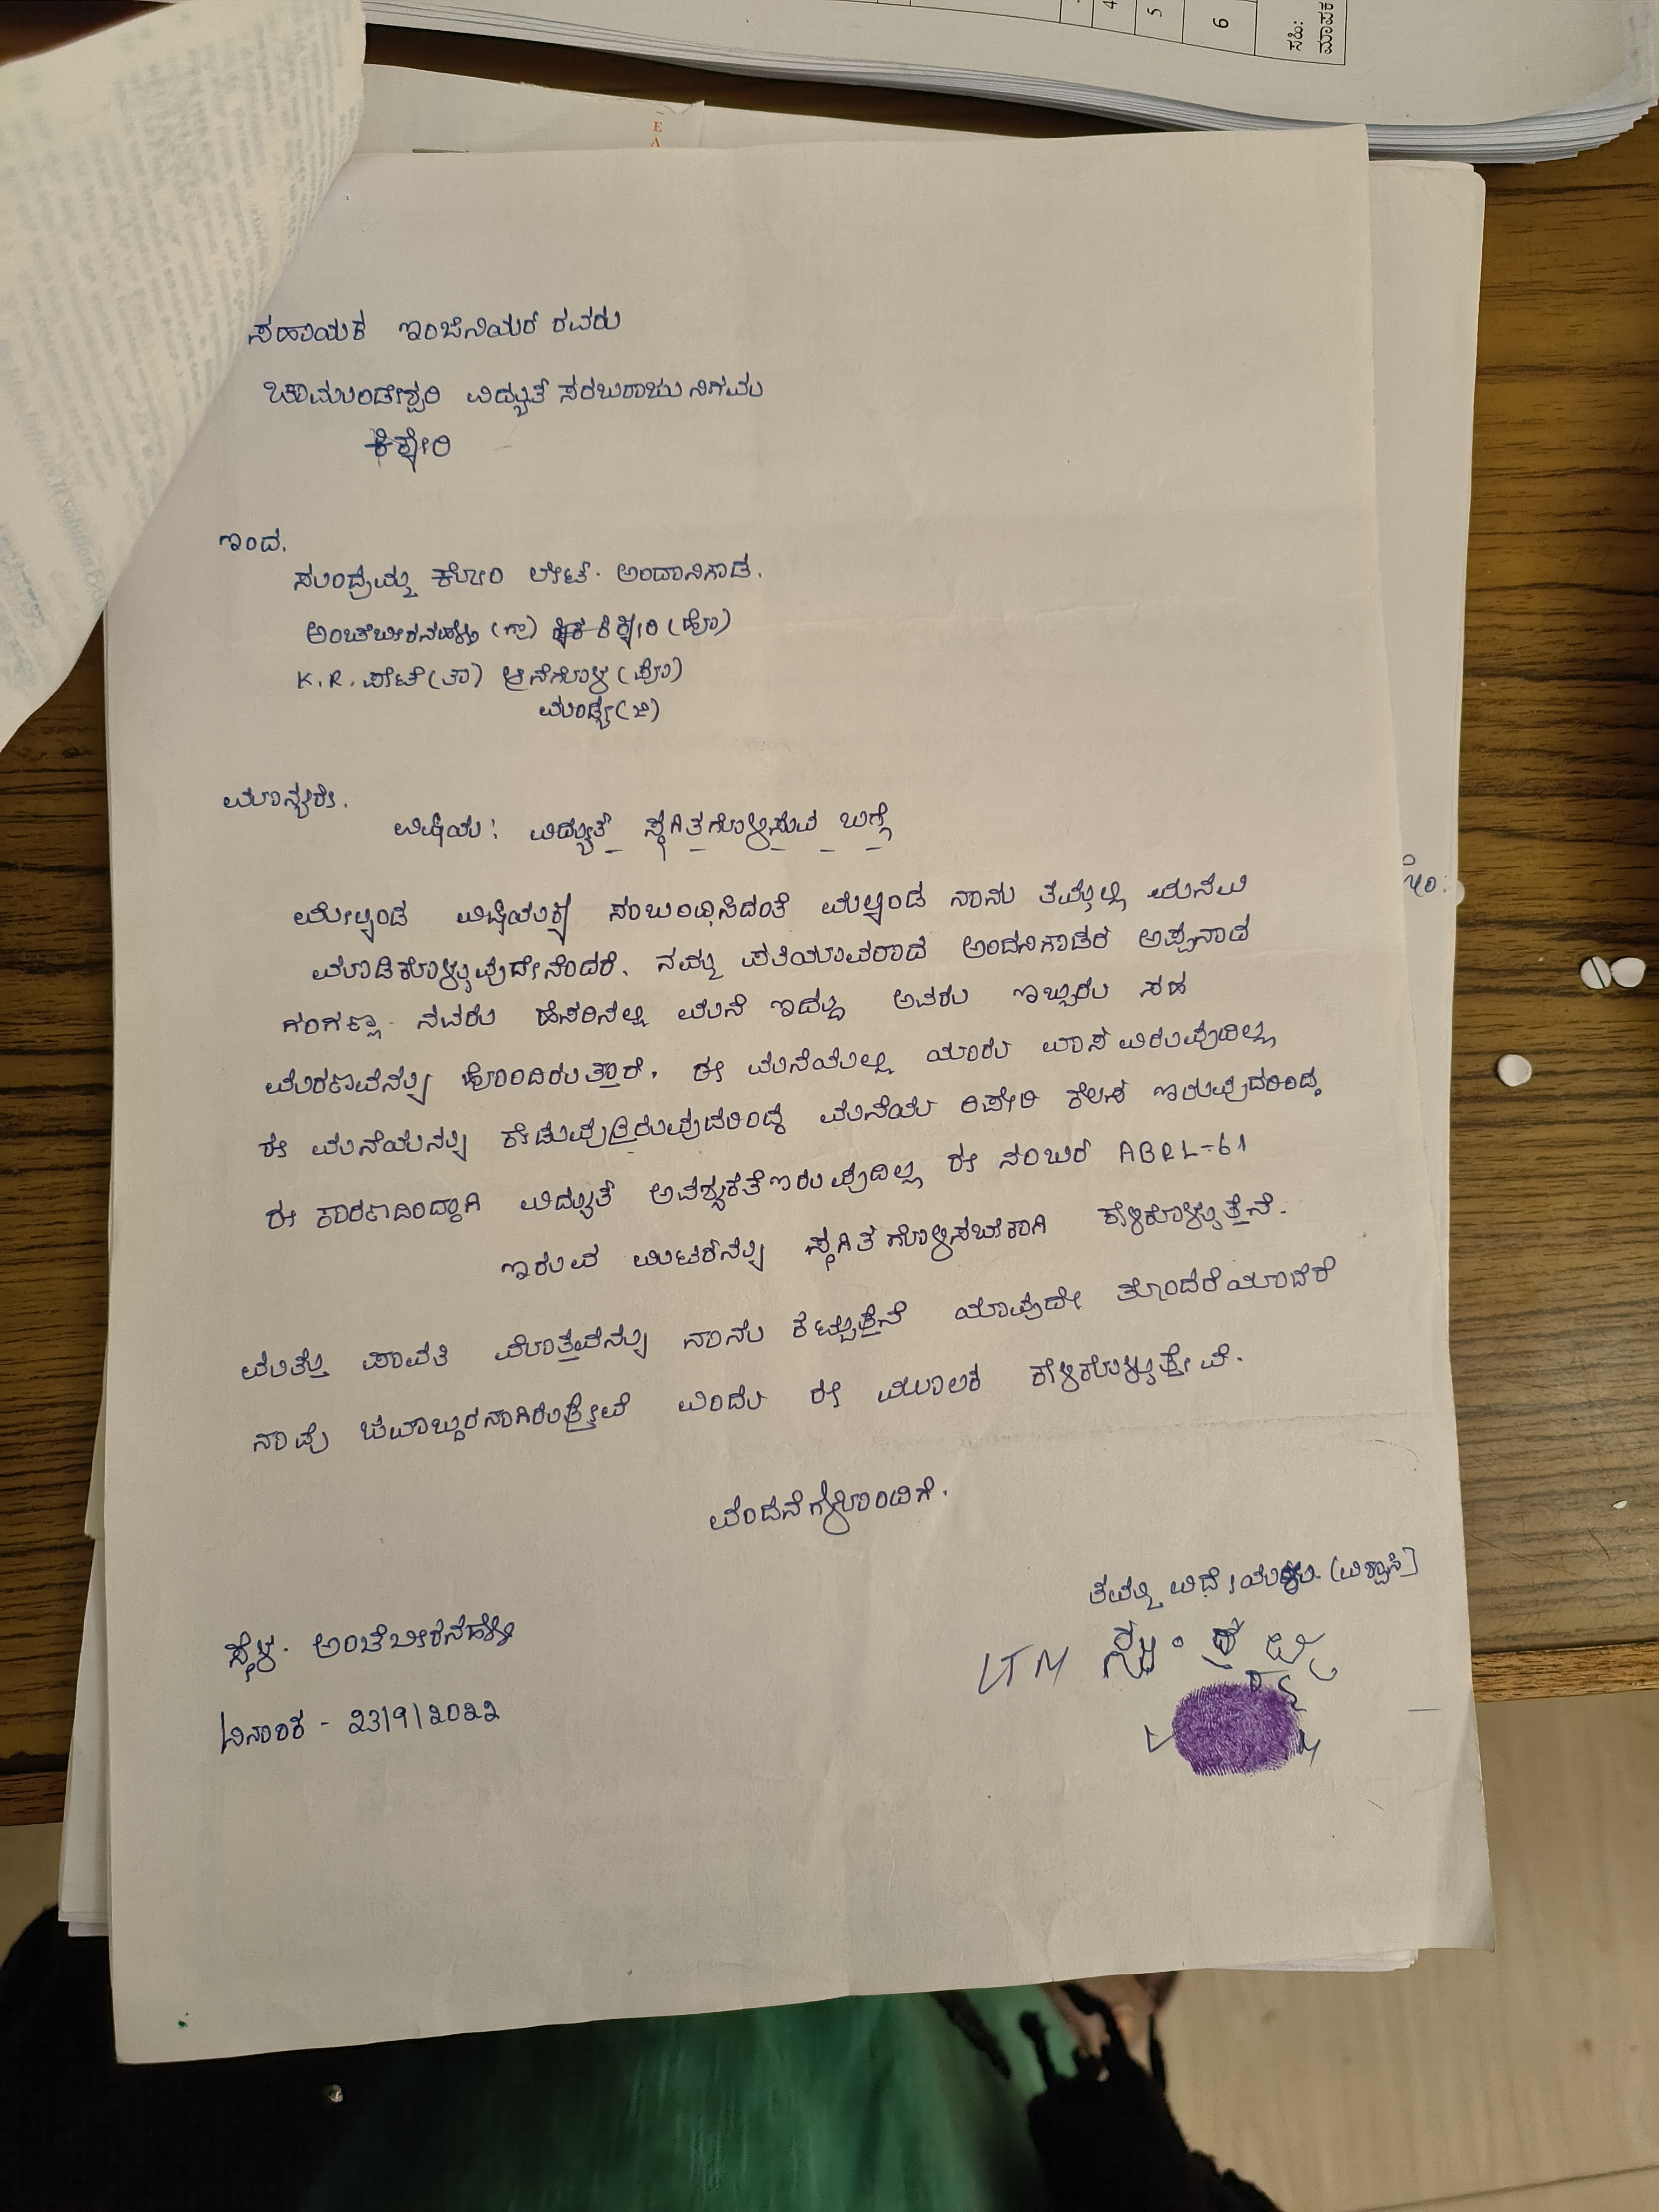 4
5
6
ಸಹಿ:
ಮಾಪಕ
E
A
ಸಹಾಯಕ ಇಂಜಿನಿಯರ್ ರವರು
ಚಾಮುಂಡೇಶ್ವರಿ ವಿದ್ಯುತ್ ಸರಬರಾಜು ನಿಗಮ
ಕಿಕ್ಕೇರಿ
ಇಂದ.
ಕೋಂ ಲೇಟ್. ಅಂದಾನಿಗೌಡ.
ಅಂಚೆಬೀರನಹಳ್ಳಿ (ಗ್ರಾ) ಕಿಕ್ಕೇರಿ (ಹೋ)
K.R. ಪೇಟೆ (ತಾ) ಆನೆಗೊಳ (ಪೋ)
ಮಂಡ್ಯ (ಜಿ)
ಮಾನ್ಯರೇ.
ವಿಷಯ: ವಿದ್ಯುತ್ ಸ್ಥಗಿತಗೊಳ್ಳಿಸುವ ಬಗ್ಗೆ
ಮೇಲ್ಕಂಡ ವಿಷಯಕ್ಕೆ ಸಂಬಂಧಿಸಿದಂತೆ ಮೆಲ್ಕಂಡ ನಾನು ತಮ್ಮಲ್ಲಿ ಮನವಿ
ಮಾಡಿಕೊಳ್ಳುವುದೇನೆಂದರೆ. ನಮ್ಮ ಪತಿಯಾವರಾದ ಅಂದನಿಗೌಡರ ಅಪ್ಪನಾದ
ಗಂಗಣ್ಣಾ ನವರು ಹೆಸರಿನಲ್ಲಿ ಮನೆ ಇದ್ದು ಅವರು ಇಬ್ಬರು ಸಹ
ಮರಣವನ್ನು ಹೊಂದಿರುತ್ತಾರೆ. ಈ ಮನೆಯಲ್ಲಿ ಯಾರು ವಾಸ ವಿರುವುದಿಲ್ಲ
ಈ ಮನೆಯನ್ನು ಮನೆಯ ರಿಪೇರಿ ಕೆಲಸ ಇರುವುದರಿಂದ
ಈ ಕಾರಣದಿಂದ್ದಾಗಿ ವಿದ್ಯುತ್ ಅವಶ್ಯಕತೆ ಇರುವುದಿಲ್ಲ ಈ ನಂಬರ್ ABRL-61
ಇರುವ ಮಿಟರ್‌ನ್ನು ಸ್ಥಗಿತಗೊಳ್ಳಿಸಬೇಕಾಗಿ ಕೇಳಿಕೊಳ್ಳುತ್ತೆನೆ.
ಮತ್ತು ಪಾವತಿ ಮೊತ್ತವನ್ನು ನಾನು ಕಟ್ಟುತ್ತೆನೆ ಯಾವುದೇ ತೊಂದರೆಯಾದರೆ
ನಾವು ಜವಾಬ್ದಾರನಾಗಿರುತ್ತೇವೆ ಎಂದು ಈ ಮೂಲಕ ಕೇಳಿಕೊಳ್ಳುತ್ತೇವೆ.
ವಂದನೆಗಳೊಂದಿಗೆ.
ತಮ್ಮ ವಿಧೇಯ (ವಿಶ್ವಾಸಿ)
LTM
ಸ್ಥಳ. ಅಂಚೆಬೀರನಹಳ್ಳಿ
ದಿನಾಂಕ - 23/9/2022